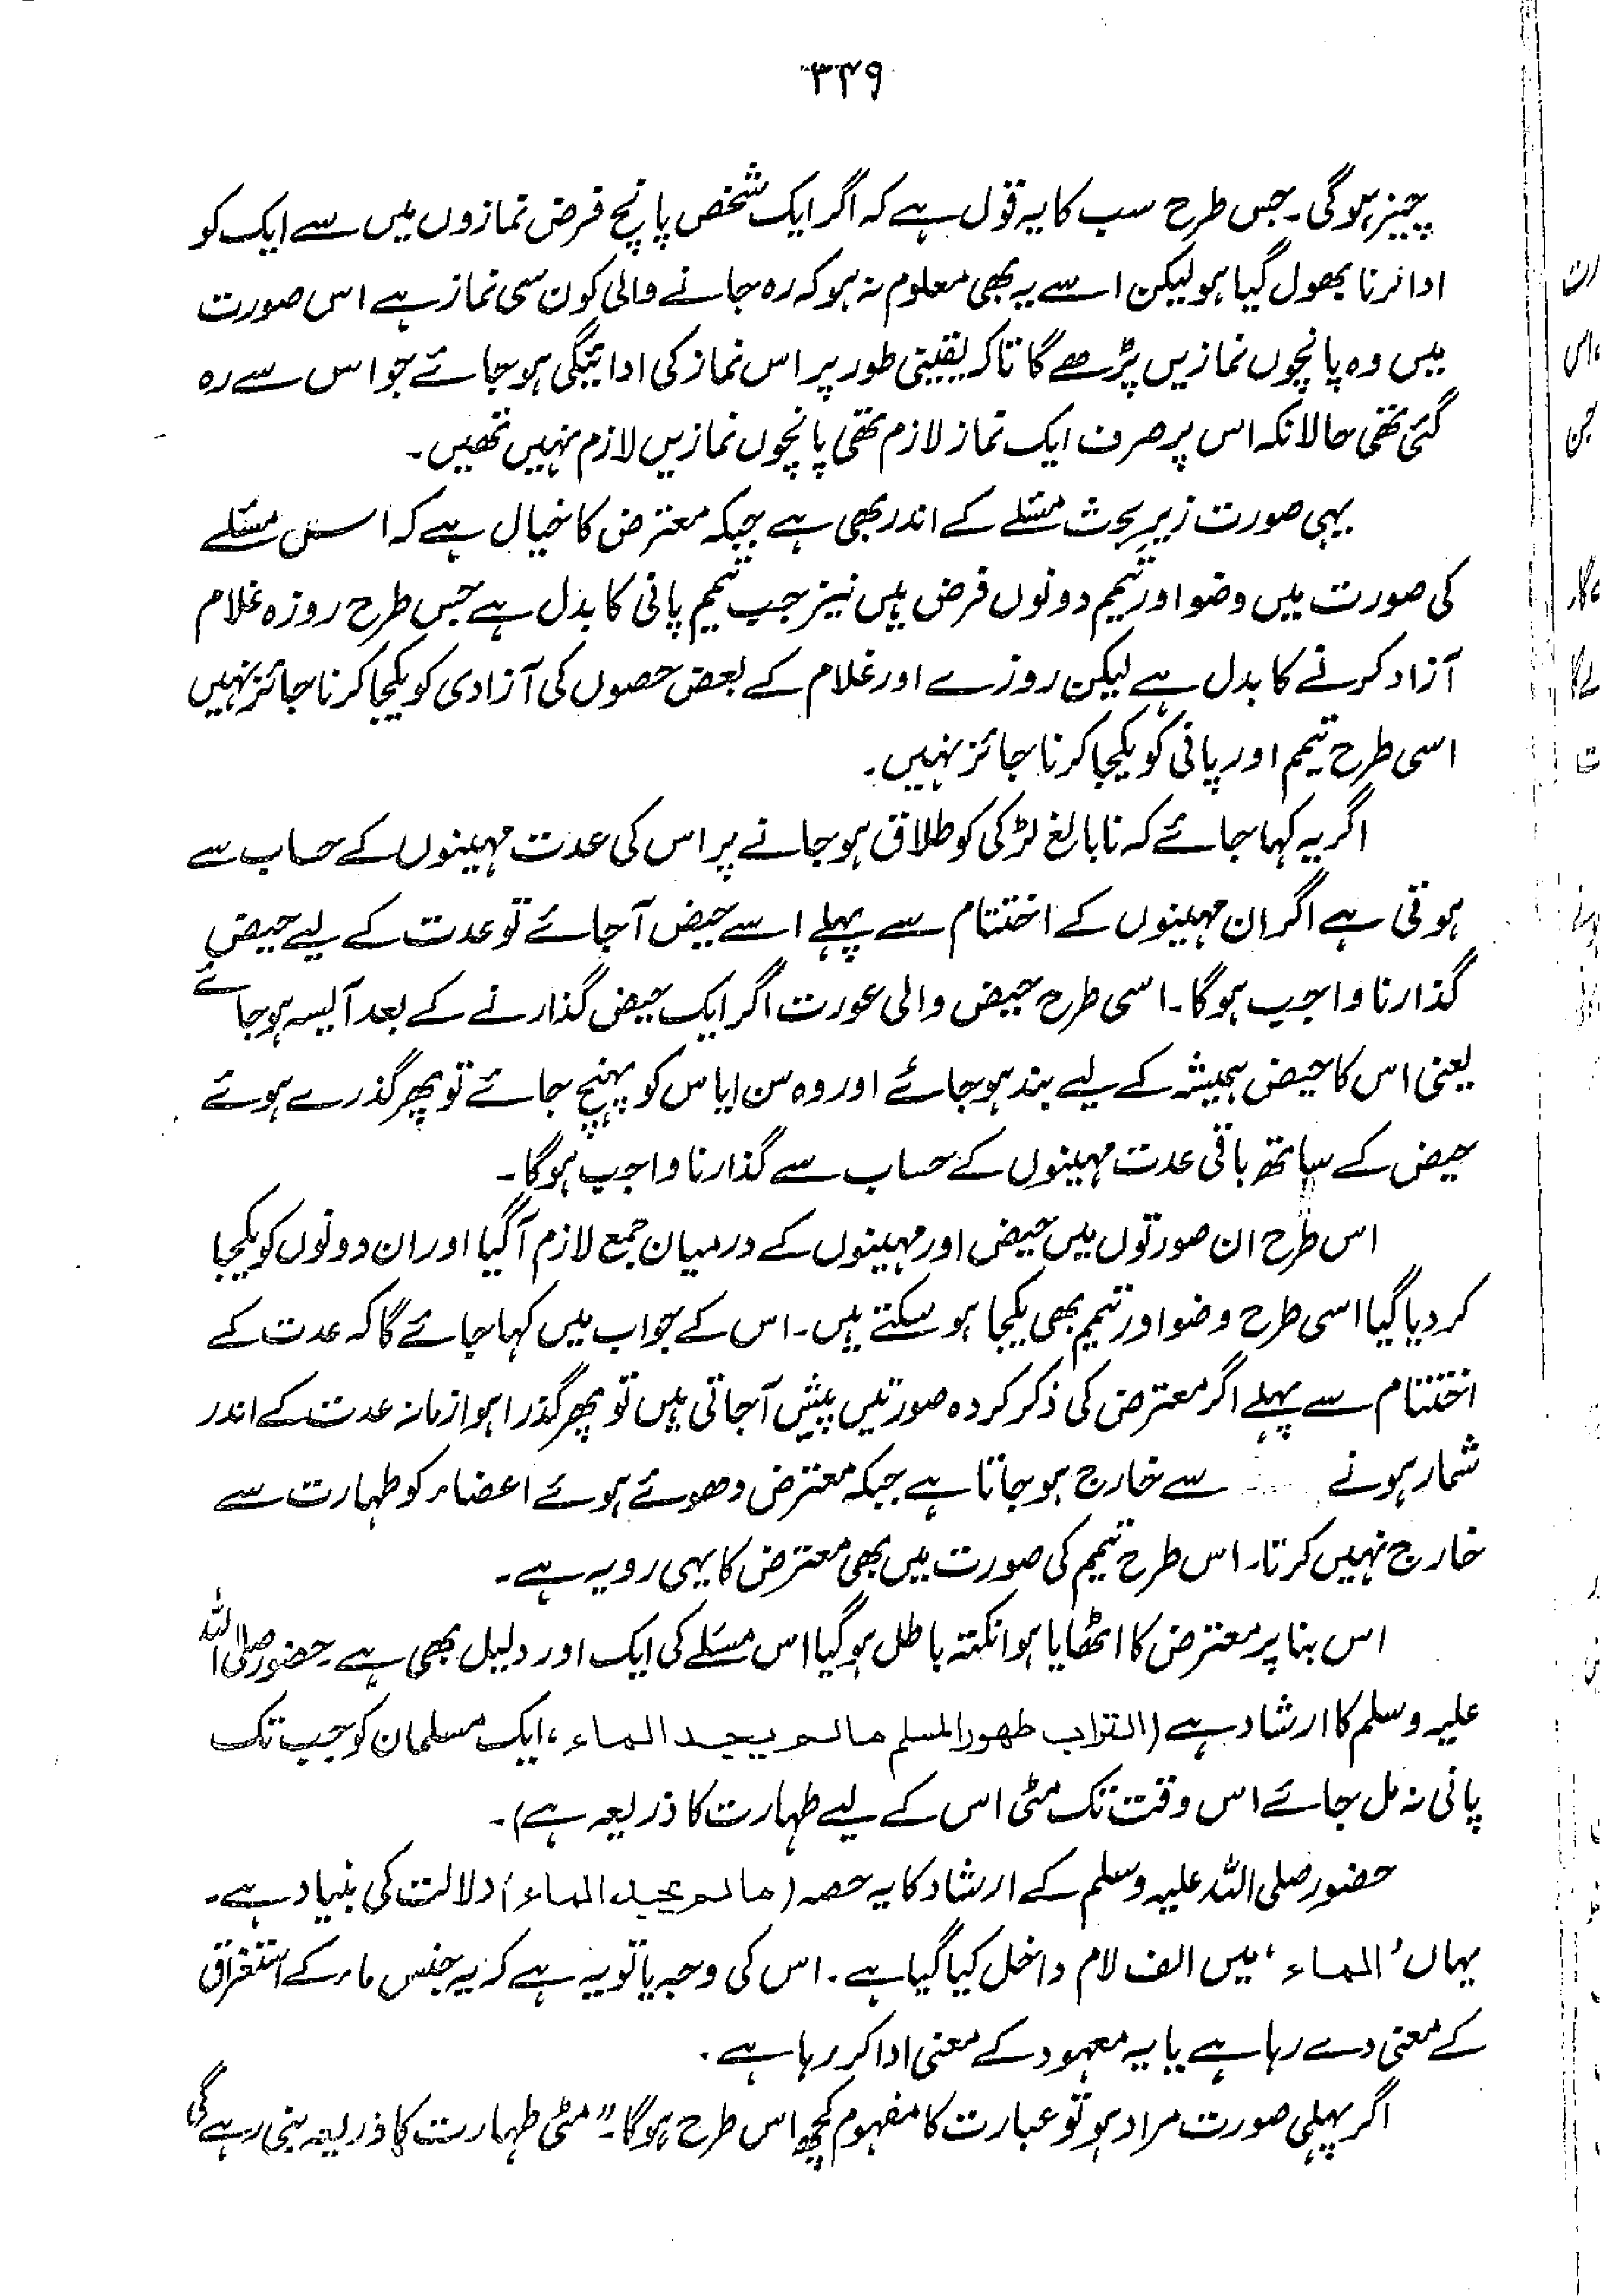 ۳۴۹
چیز ہوگی۔ جس طرح سب کا یہ قول ہے کہ اگر ایک شخص پانچ فرض نمازوں میں سے ایک کو
ادا کرنا بھول گیا ہو لیکن اسے یہ بھی معلوم نہ ہو کہ رہ جانے والی کون سی نماز ہے اس صورت
میں وہ پانچوں نمازیں پڑھے گا تاکہ یقینی طور پر اس نماز کی ادائیگی ہو جائے جو اس سے رہ
گئی تھی حالانکہ اس پر صرف ایک نماز لازم تھی پانچوں نمازیں لازم نہیں تھیں۔
یہی صورت زیرِ بحث مسئلے کے اندر بھی ہے جبکہ معترض کا خیال ہے کہ اس مسئلے
کی صورت میں وضو اور تیمم دونوں فرض ہیں نیز جب تیمم پانی کا بدل ہے جس طرح روزہ غلام
آزاد کرنے کا بدل ہے لیکن روزے اور غلام کے بعض حصوں کی آزادی کو یکجا کرنا جائز نہیں
اسی طرح تیمم اور پانی کو یکجا کرنا جائز نہیں۔
اگر یہ کہا جائے کہ نابالغ لڑکی کو طلاق ہو جانے پر اس کی عدت مہینوں کے حساب سے
ہوتی ہے اگر ان مہینوں کے اختتام سے پہلے اسے حیض آجائے تو عدت کے لیے حیض
گذارنا واجب ہوگا۔ اسی طرح حیض والی عورت اگر ایک حیض گذارنے کے بعد آئیسہ ہو جائے
یعنی اس کا حیض ہمیشہ کے لیے بند ہو جائے اور وہ سن ایاس کو پہنچ جائے تو پھر گذرے ہوئے
حیض کے ساتھ باقی عدت مہینوں کے حساب سے گذارنا واجب ہوگا۔
اس طرح ان صورتوں میں حیض اور مہینوں کے درمیان جمع لازم آگیا اور ان دونوں کو یکجا
کر دیا گیا اسی طرح وضو اور تیمم بھی یکجا ہو سکتے ہیں۔ اس کے جواب میں کہا جائے گا کہ عدت کے
اختتام سے پہلے اگر معترض کی ذکر کردہ صورتیں پیش آجاتی ہیں تو پھر گذرا ہوا زمانہ عدت کے اندر
شمار ہونے سے خارج ہو جاتا ہے جبکہ معترض دھوئے ہوئے اعضاء کو طہارت سے
خارج نہیں کرتا۔ اس طرح تیمم کی صورت میں بھی معترض کا یہی رویہ ہے۔
اس بنا پر معترض کا اٹھایا ہوا نکتہ باطل ہوگیا اس مسئلے کی ایک اور دلیل بھی ہے۔ حضور صلی اللہ
علیہ وسلم کا ارشاد ہے (التراب طهور المسلم مالم یجد الماء، ایک مسلمان کو جب تک
پانی نہ مل جائے اس وقت تک مٹی اس کے لیے طہارت کا ذریعہ ہے)۔
حضور صلی اللہ علیہ وسلم کے ارشاد کا یہ حصہ (مالم یجد الماء) دلالت کی بنیاد ہے۔
یہاں ’الماء‘ میں الف لام داخل کیا گیا ہے۔ اس کی وجہ یا تو یہ ہے کہ یہ جنس ماء کے استغراق
کے معنی دے رہا ہے یا یہ معہود کے معنی ادا کر رہا ہے۔
اگر پہلی صورت مراد ہو تو عبارت کا مفہوم کچھ اس طرح ہوگا۔ "مٹی طہارت کا ذریعہ بنی رہے گی